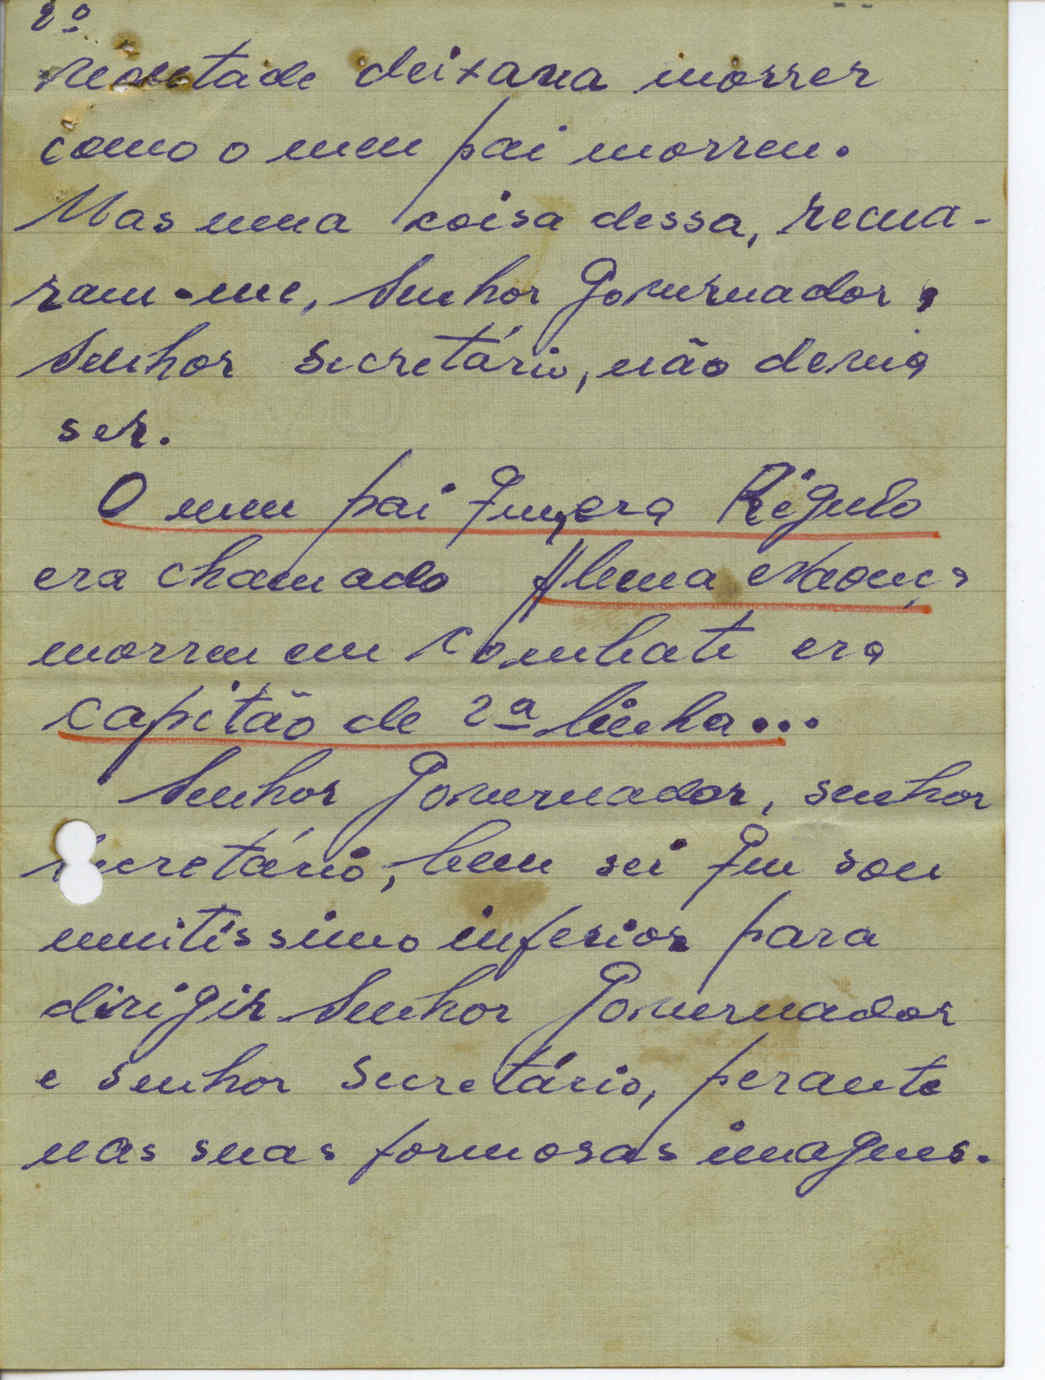 2º
vontade deixava morrer
como o meu pai morreu.
Mas uma coisa dessa, recua-
ram-me, Senhor Governador,
Senhor secretário, não devia
ser.
O meu pai que era Régulo
era chamado
morreu em combate era
capitão de 2ª linha...
Senhor Governador, senhor
secretário, bem sei que sou
muitissimo inferior para
dirigir Senhor Governador
e senhor Secretário, perante
nas suas formosas imagens.